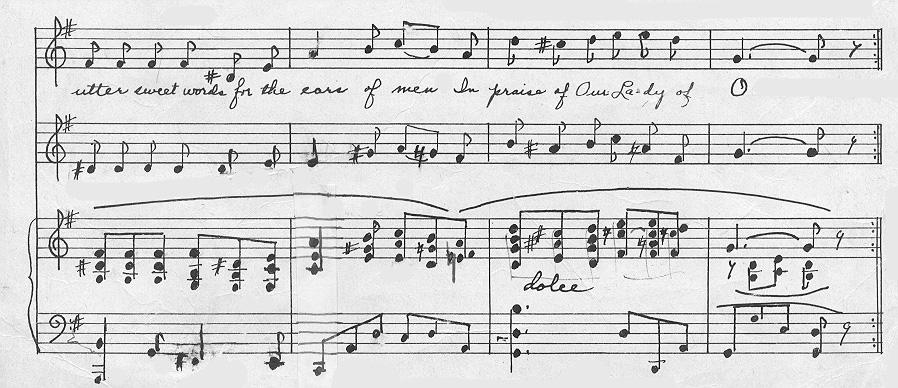 utter sweet words for the ears of men In praise of Our La-dy of O
dolce